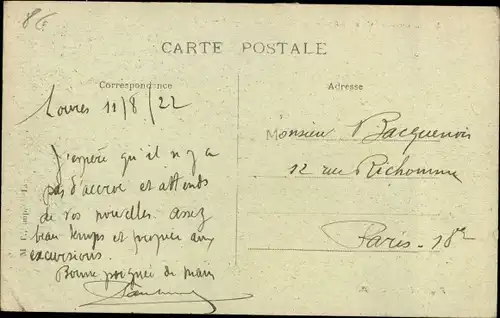 8€
CARTE POSTALE
Correspondance
Adresse
Louvres 11/8/22
Monsieur Bacquenois
J'espère qu'il n'y a
12 rue Richomme
pas d'accroc et attends
de vos nouvelles. Assez
Paris - 18e
beau temps et propice aux
excursions.
Bonne poignée de main